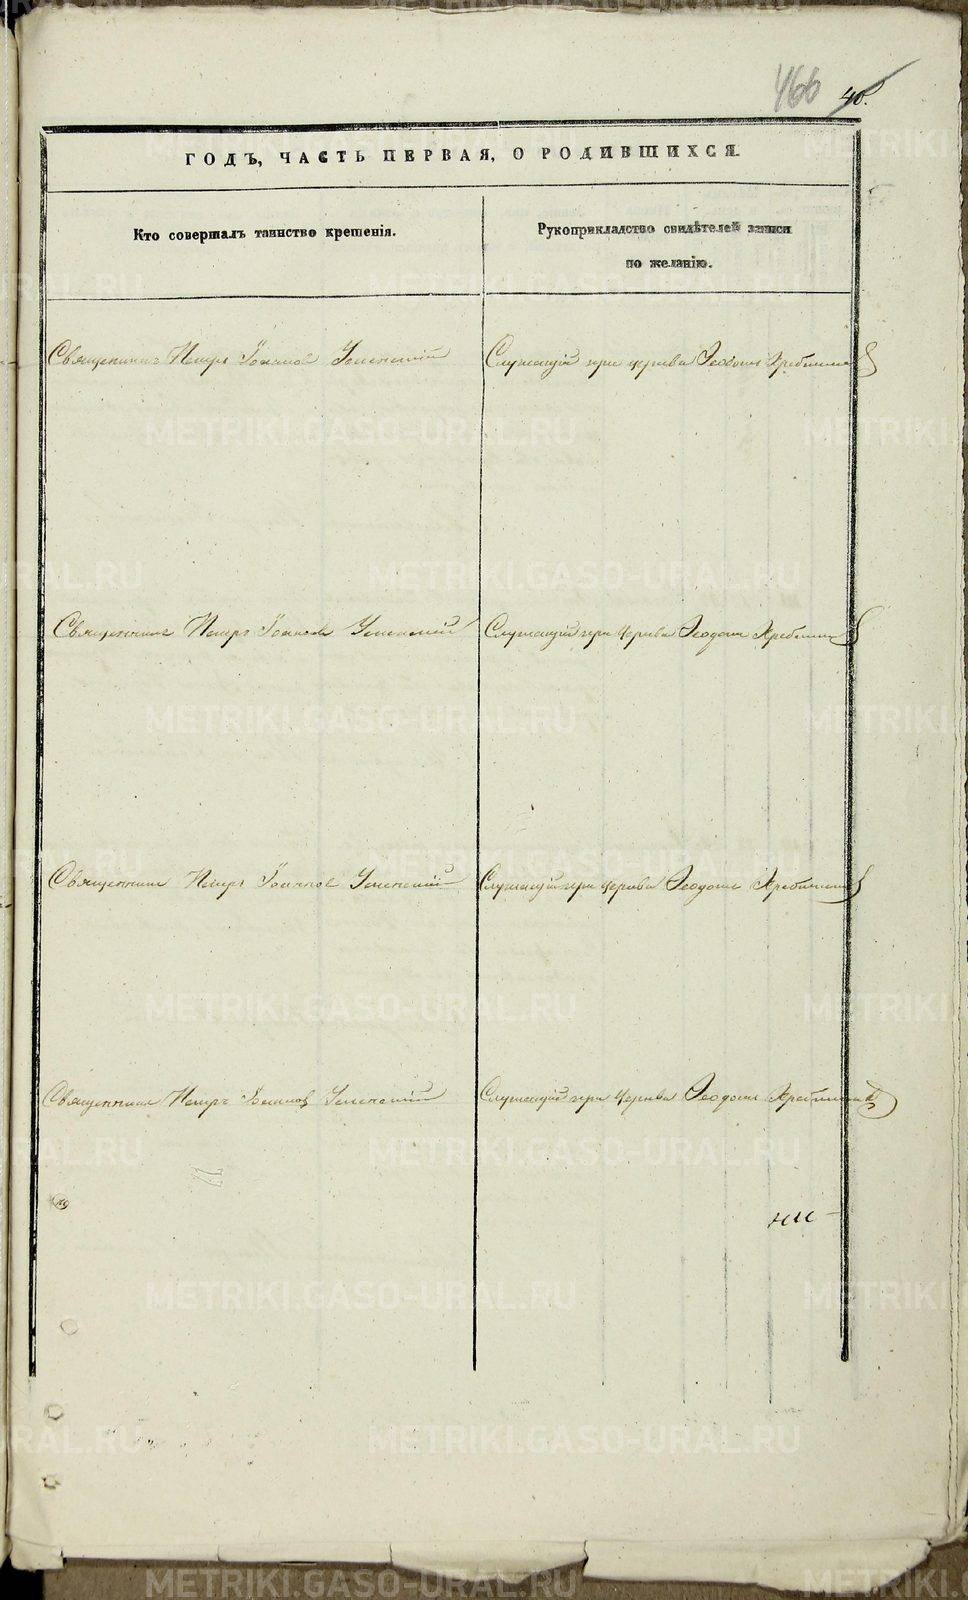 466 40.
ГОДЪ, ЧАСТЬ ПЕРВАЯ, О РОДИВШИХСЯ.
Кто совершалъ таинство крещенія.
Рукоприкладство свидѣтелей записи
по желанію.
Священникъ Петръ Іоанновъ Успенскій
Служащій при церкви Ѳеодотъ
Священникъ Петръ Іоанновъ Успенскій
Служащій при церкви Ѳеодотъ
Священникъ Петръ Іоанновъ Успенскій
Служащій при церкви Ѳеодотъ
Священникъ Петръ Іоанновъ Успенскій
Служащій при церкви Ѳеодотъ
METRIKI.GASO-URAL.RU